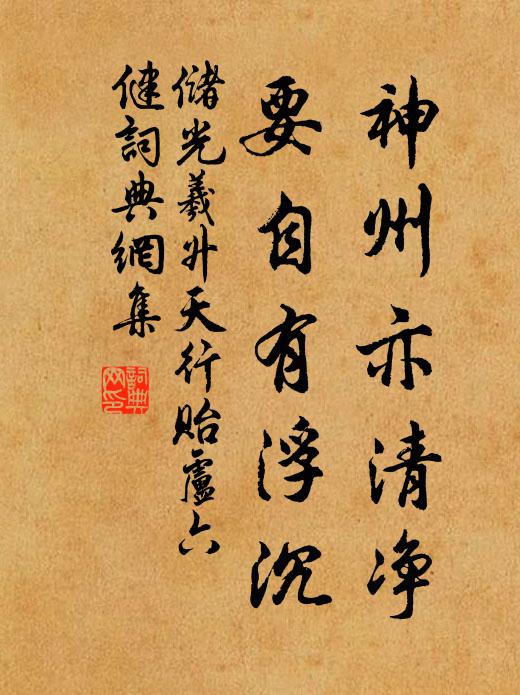 神州亦清净
要自有浮沉
儲光羲升天行貽盧六
健詞典網集
詞典网印